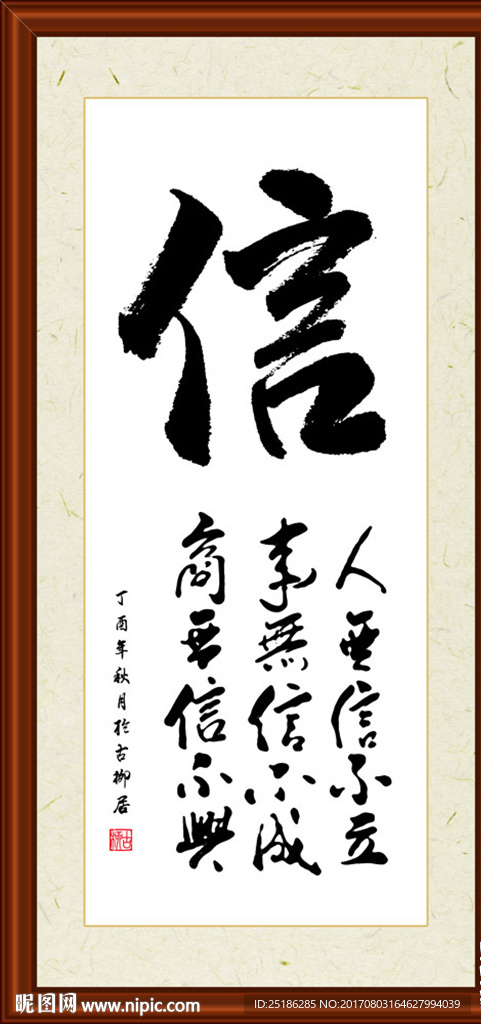 信
人無信不立
事無信不成
商無信不興
丁酉年秋月於古柳居
昵图网 www.nipic.com
ID:25186285 NO:20170803164627994039